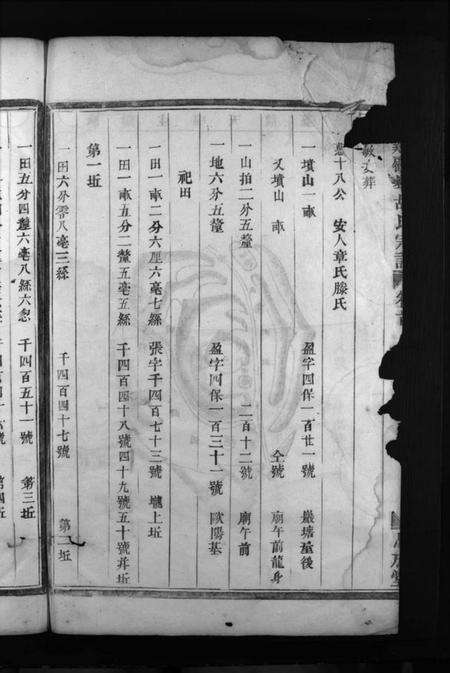 胡氏宗譜
數文葬
十八公 安人章氏滕氏
一墳山一畝 盈字四保一百廿一號 嚴塘臺後
又墳山 畝 仝號 廟午前龍身
一山拍二分五釐 二百十二號 廟午前
一地六分五釐 盈字四保一百三十一號 歐陽基
祀田
一田一畝二分六厘六毫七絲 張字千四百七十三號 壠上坵
一田一畝五分二釐五毫五絲 千四百四十八號四十九號五十號并坵
第一坵
一田六分零八毫三絲 千四百四十七號 第二坵
一田五分四釐六毫八絲六忽 千四百五十一號 第三坵
第四坵